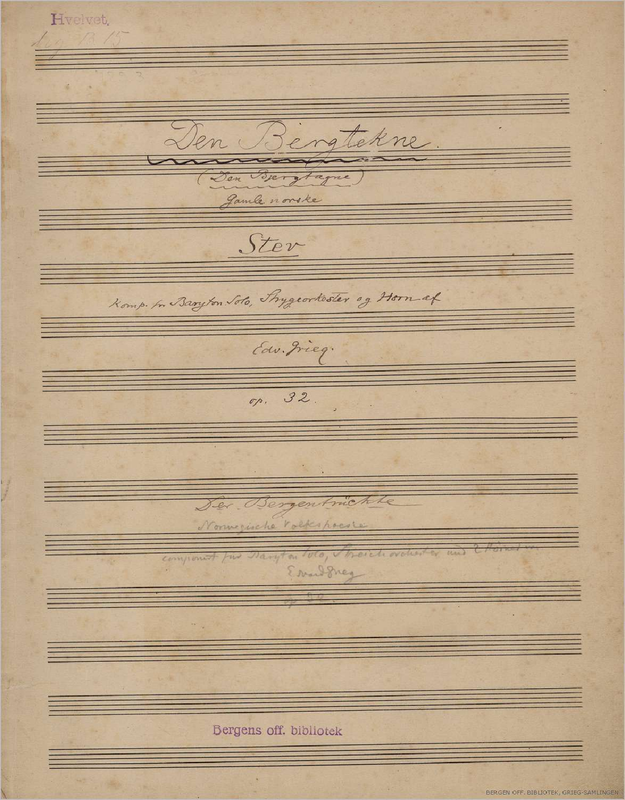 Hvelvet.
Den Bergtekne.
(Den Bjergtagne)
Gamle norske
Stev
Komp. for Baryton Solo, Strygeorkester og Horn af
Edv. Grieg.
op. 32.
Der Bergentrückte
Norwegische Volkspoesie
componirt für Baryton Solo, Streichorchester und 2 Hörner
Edvard Grieg
op 32.
Bergens off. bibliotek
BERGEN OFF. BIBLIOTEK, GRIEG-SAMLINGEN